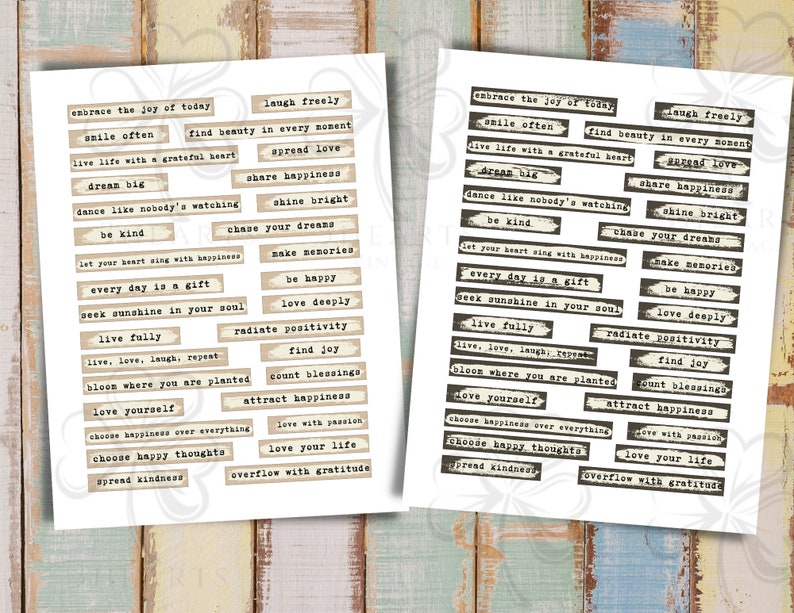 embrace the joy of today
laugh freely
smile often
find beauty in every moment
live life with a grateful heart
spread love
dream big
share happiness
dance like nobody's watching
shine bright
be kind
chase your dreams
let your heart sing with happiness
make memories
every day is a gift
be happy
seek sunshine in your soul
love deeply
live fully
radiate positivity
live, love, laugh, repeat
find joy
bloom where you are planted
count blessings
love yourself
attract happiness
choose happiness over everything
love with passion
choose happy thoughts
love your life
spread kindness
overflow with gratitude
embrace the joy of today
laugh freely
smile often
find beauty in every moment
live life with a grateful heart
spread love
dream big
share happiness
dance like nobody's watching
shine bright
be kind
chase your dreams
let your heart sing with happiness
make memories
every day is a gift
be happy
seek sunshine in your soul
love deeply
live fully
radiate positivity
live, love, laugh, repeat
find joy
bloom where you are planted
count blessings
love yourself
attract happiness
choose happiness over everything
love with passion
choose happy thoughts
love your life
spread kindness
overflow with gratitude